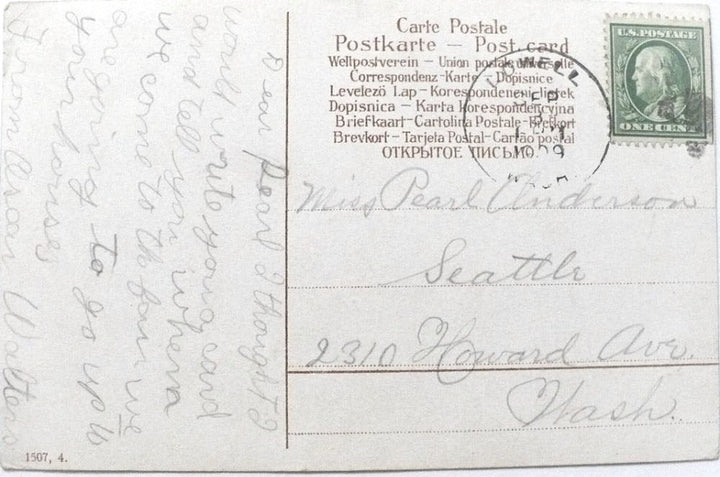 Carte Postale
Postkarte – Post card
Weltpostverein – Union postale universelle
Correspondenz-Karte – Dopisnice
Levelezö Lap – Korespondencni listek
Dopisnica – Karta Korespondencyjna
Briefkaart – Cartolina Postale – Brefkort
Brevkort – Tarjeta Postal – Cartão postal
ОТКРЫТОЕ ПИСЬМО
U.S. POSTAGE
ONE CENT
WELL
SEP
1909
Miss Pearl Anderson
Seattle
2310 Howard Ave.
Wash.
Dear Pearl I thought I
would write you a card
and tell you when
we come to the fair we
are going to go up to
your house
From Oscar Walters
1507, 4.